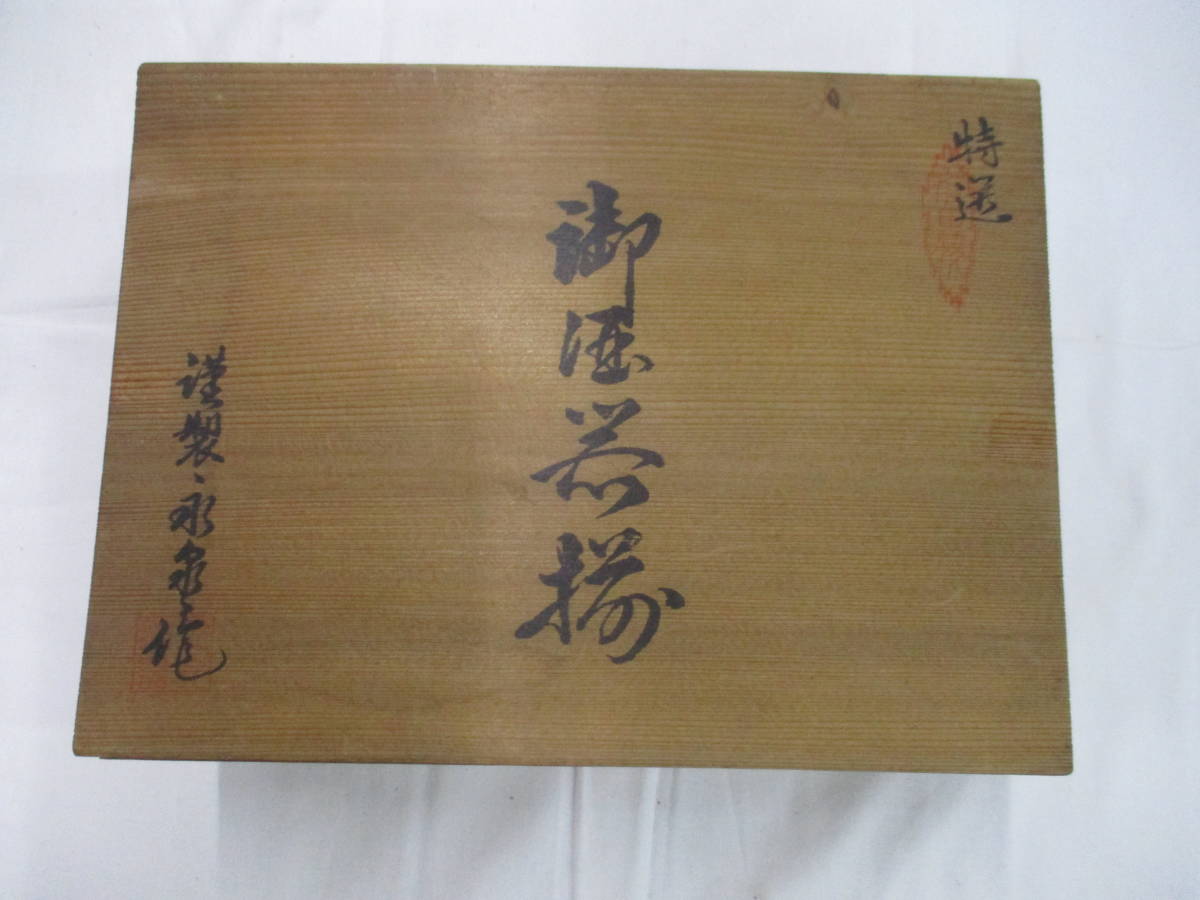 特選
御酒器揃
謹製 永泉作